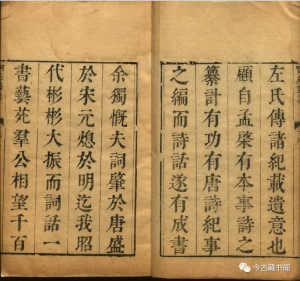 左氏傳諸紀載遺意也
顧自孟棨有本事詩之
纂計有功有唐詩紀事
之編而詩話遂有成書
余獨慨夫詞肇於唐盛
於宋元熄於明迄我昭
代彬彬大振而詞話一
書藝苑羣公相望千百
今古藏书阁